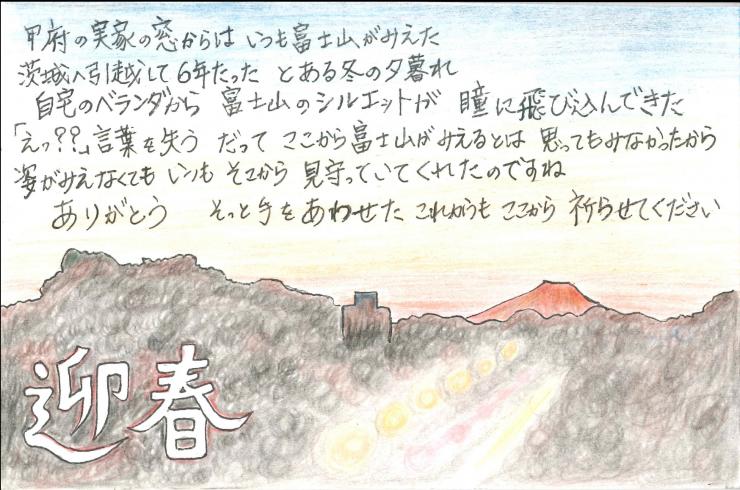 甲府の実家の窓からは いつも富士山がみえた
茨城へ引越して6年たった とある冬の夕暮れ
自宅のベランダから 富士山のシルエットが 瞳に飛び込んできた
「えっ??」言葉を失う だって ここから富士山がみえるとは 思ってもみなかったから
姿がみえなくても いつも そこから 見守っていてくれたのですね
ありがとう そっと手をあわせた これからも ここから 祈らせてください
迎春